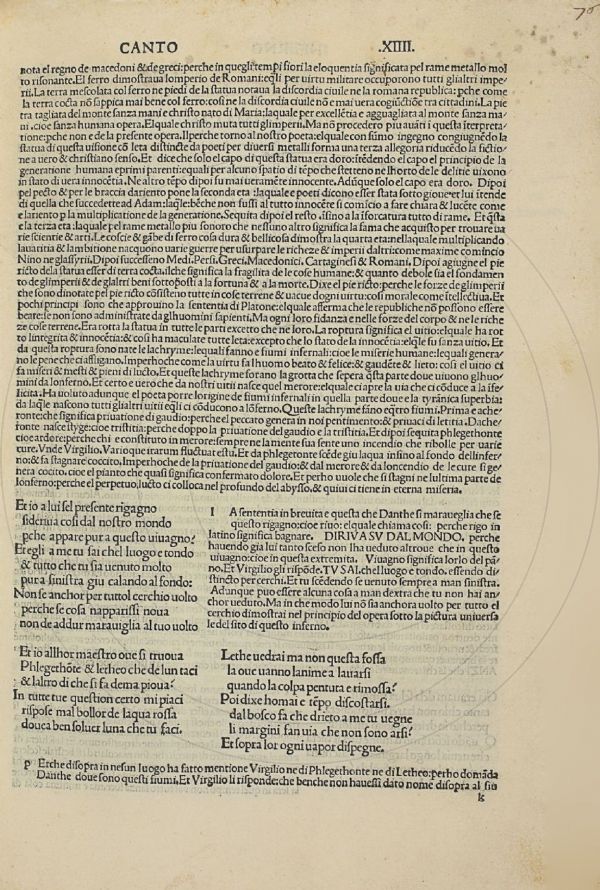 70
CANTO .XIIII.
nota el regno de macedoni & de greci: perche in quegli tempi fiori la eloquentia significata pel rame metallo mol
to risonante. El ferro dimostraua lomperio de Romani: eqli per uirtu militare occuporono tutti glialtri impe/
rii. La terra mescolata col ferro ne piedi de la statua notaua la discordia ciuile ne la romana republica: pche come
la terra cocta nõ sappica mai bene col ferro: cosi ne la discordia ciuile nõ e mai uera cogiũctiõe tra cittadini. La pie
tra tagliata del monte sanza mani e christo nato di Maria: laquale per excellẽtia e agguagliata al monte sanza ma/
ni .cioe sanza humana opera. Elquale christo muta tutti glimperii. Ma nõ procedero piu auãti i questa iterpreta/
tione: pche non e de la presente opera. Ilperche torno al nostro poeta: elquale con sũmo ingegno congiugnẽdo la
statua di questa uisione cõ leta distincte da poeti per diuersi metalli forma una terza allegoria riducẽdo la fictio/
ne a uero & christiano senso. Et dice che solo el capo di questa statua era doro: itẽdendo el capo el principio de la
generatione humana e primi parenti: equali per alcuno spatio di tẽpo che stetteno ne lhorto de le delitie uixono
in stato di uera innocẽtia. Ne altro tẽpo dipoi fu mai ueramẽte innocente. Adũque solo el capo era doro. Dipoi
pel pecto & per le braccia dariento pone la seconda eta: laquale e poeti dicono esser stata sotto gioue: et lui itende
di quella che succedette ad Adam: laqle: bẽche non fussi al tutto innocẽte si comiscio a fare chiara & lucẽte come
e lariento p la multiplicatione de la generatione. Sequita dipoi el resto .ifsino a la sforcatura tutto di rame. Et q̃sta
e la terza eta: laquale pel rame metallo piu sonoro che nessuno altro significa la fama che acquisto per trouare ua
rie scientie & arti. Le coscie & gãbe di ferro cosa dura & bellicosa dimostra la quarta eta: nellaquale multiplicando
lauaritia & lambitione nacquono uarie guerre per usurpare le richeze & imperii daltri: come maxime comincio
Nino ne glassyrii. Dipoi successeno Medi. Persi. Greci. Macedonici. Cartaginesi & Romani. Dipoi agiugne el pie
ricto dela statua esser di terra cocta. ilche significa la fragilita de le cose humane: & quanto debole sia el fondamen
to de glimperii & de glaltri beni sottoposti a la fortuna & a la morte. Dixe el pie ricto: perche le forze de glimperii
che sono dinotate pel pie ricto cõsisteno tutte in cose terrene & uacue dogni uirtu: cosi morale come itellectiua. Et
pochi principi sono che approuino la sententia di Platone: elquale afferma che le republiche nõ possono essere
beate: se non sono administrate da glhuomini sapienti. Ma ogni loro fidanza e nelle forze del corpo & ne le riche
ze cose terrene. Era rotta la statua in tutte le parti excetto che ne loro. La roptura significa el uitio: elquale ha rot
to lintegrita & innocẽtia: & cosi ha maculate tutte leta: excepto che lo stato de la innocẽtia: elq̃le fu sanza uitio. Et
da questa roptura sono nate le lachryme: lequali fanno e fiumi infernali: cioe le miserie humane: lequali genera/
no le pene che ciaffligano. Imperhoche come la uirtu fa lhuomo beato & felice: & gaudẽte & lieto: cosi el uitio ci
fa miseri & mesti & pieni di lucto. Et queste lachryme forano la grotta che sepera q̃sta parte doue uiuono glhuo
mini da lonferno. Et certo e uero che da nostri uitii nasce quel merore: elquale ci apre la uia che ci cõduce a la fe/
licita. Ha uoluto adunque el poeta porre lorigine de fiumi infernali in quella parte doue e la tyrãnica superbia:
da laq̃le nascono tutti glialtri uitii eq̃li ci cõducono a lõferno. Queste lachryme fãno eq̃tro fiumi. Prima e ache/
ronte: che significa priuatione di gaudio: perche el peccato genera in noi pentimento: & priuaci di letitia. Dache
fonte nasce styge: cioe tristitia: perche doppo la priuatione del gaudio e la tristitia. Et dipoi sequita phlegethonte
cioe ardore: perche chi e constituto in merore: sempre ne la mente sua sente uno incendio che ribolle per uarie
cure. Vnde Virgilio. Varioque irarum fluctuat ęstu. Et da phlegethonte scẽde giu laqua insino al fondo dellinfer/
no: & fa stagnare coccito. Imperhoche de la priuatione del gaudio: & dal merore & da loncendio de le cure si ge/
nera cocito. cioe el pianto che quasi significa confermato dolore. Et perho uuole che si stagni ne lultima parte de
lonferno: perche el perpetuo, lucto ci colloca nel profondo del abysso, & quiui ci tiene in eterna miseria.
Et io a lui sel presente rigagno
sideriua cosi dal nostro mondo
pche appare pur a questo uiuagno?
Et egli a me tu sai chel luogo e tondo
& tutto che tu sia uenuto molto
pur a sinistra giu calando al fondo:
Non se anchor per tuttol cerchio uolto
perche se cosa napparissi noua
non de addur marauiglia al tuo uolto
l A sententia in breuita e questa che Danthe si marauiglia che se
questo rigagno: cioe riuo: elquale chiama cosi: perche rigo in
latino significa bagnare. DIRIVA SV DAL MONDO, perche
hauendo gia lui tanto sceso non lha ueduto altroue che in questo
uiuagno: cioe in questa extremita. Viuagno significa lorlo del pã
no. Et Virgilio gli rispõde. TV SAI. chel luogo e tondo. essendo di/
stincto per cerchi. Et tu scẽdendo se uenuto sempre a man sinistra.
Adunque puo essere alcuna cosa a man dextra che tu non hai an/
chor ueduto. Ma in che modo lui nõ sia anchora uolto per tutto el
cerchio dimostrai nel principio del opera sotto la pictura uniuersa
le del sito di questo inferno.
Et io allhor maestro oue si truoua
Phlegethõte & letheo che de lun taci
& laltro di che si fa dema pioua?
In tutte tue question certo mi piaci
rispose mal bollor de laqua rossa
douea ben soluer luna che tu faci.
Lethe uedrai ma non questa fossa
la oue uanno lanime a lauarsi
quando la colpa pentuta e rimossa?
Poi dixe homai e tẽpo discostarsi.
dal bosco fa che drieto a me tu uegne
li margini fan uia che non sono arsi?
Et sopra lor ogni uapor dispegne.
p Erche disopra in nesun luogo ha fatto mentione Virgilio ne di Phlegethonte ne di Letheo: perho domãda
Danthe doue sono questi fiumi. Et Virgilio li risponde: che benche non hauessi dato nome disopra al fiu
k